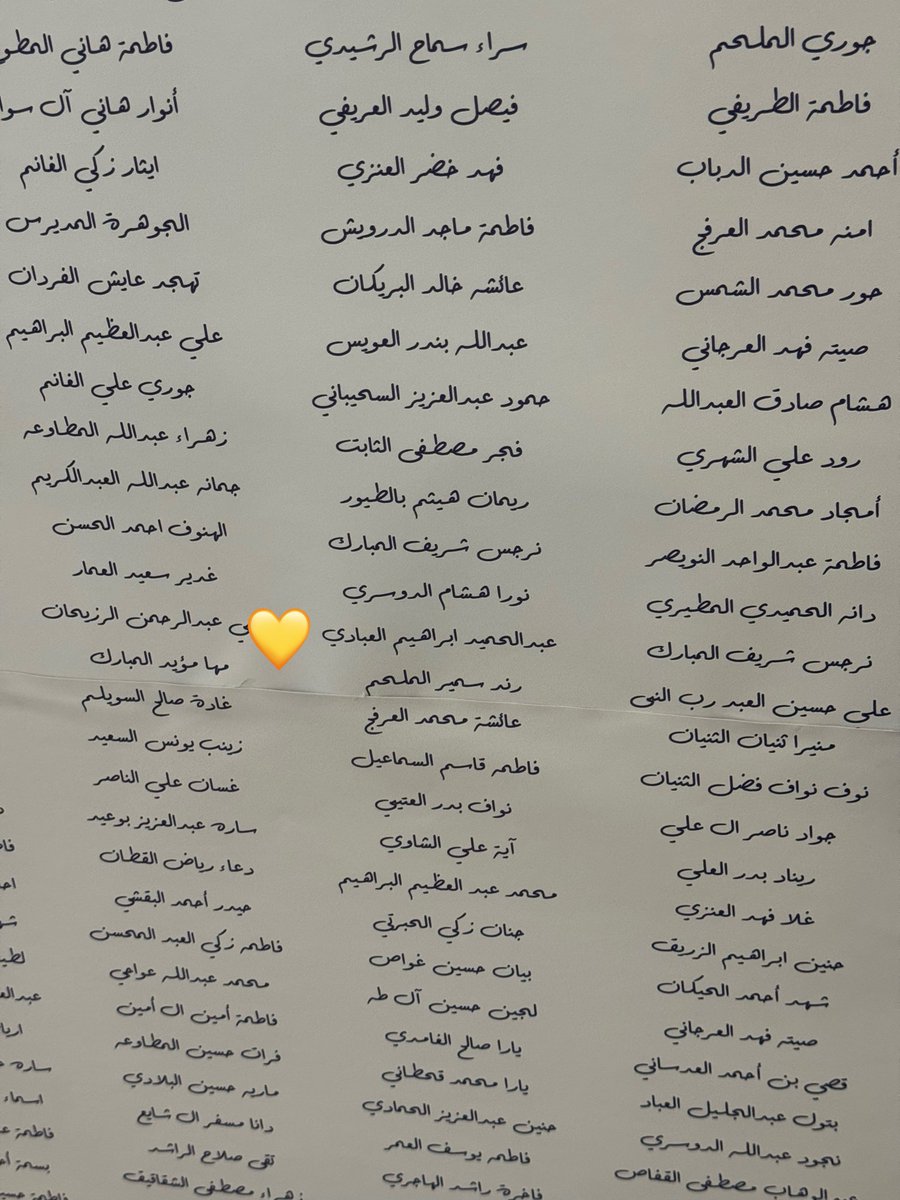 جوري الملحم
فاطمة الطريفي
أحمد حسين الدباب
امنه محمد العرفج
حور محمد الشمس
صيته فهد العرجاني
هشام صادق العبدالله
رود علي الشهري
أمجاد محمد الرمضان
فاطمة عبدالواحد النويصر
دانه الحميدي المطيري
نرجس شريف المبارك
علي حسين العبد رب النبي
منيرا ثنيان الثنيان
نوف نواف فضل الثنيان
جواد ناصر ال علي
ريناد بدر العلي
غلا فهد العنزي
حنين ابراهيم الزريق
شهد أحمد الحيكان
صيته فهد العرجاني
قصي بن أحمد العدساني
بتول عبدالجليل العباد
نجود عبدالله الدوسري
الوهاب مصطفى القفاص
سراء سماح الرشيدي
فيصل وليد العريفي
فهد خضر العنزي
فاطمة ماجد الدرويش
عائشه خالد البريكان
عبدالله بندر العويس
حمود عبدالعزيز السحيباني
فجر مصطفى الثابت
ريمان هيثم بالطيور
نرجس شريف المبارك
نورا هشام الدوسري
عبدالحميد ابراهيم العبادي
رند سمير الملحم
عائشة محمد العرفج
فاطمه قاسم السماعيل
نواف بدر العتيبي
آية علي الشاوي
محمد عبد العظيم البراهيم
جنان زكي الحبرتي
بيان حسين غواص
لجين حسين آل طه
يارا صالح الغامدي
يارا محمد قحطاني
حنين عبدالعزيز الحمادي
فاطمه يوسف العمر
فاخرة راشد الهاجري
فاطمة هاني المطو
أنوار هاني آل سوا
ايثار زكي الغانم
الجوهرة المديرس
تهجد عايش الفردان
علي عبدالعظيم البراهيم
جوري علي الغانم
زهراء عبدالله المطاوعه
جمانه عبدالله العبدالكريم
الهنوف احمد الحسن
غدير سعيد العمار
ي عبدالرحمن الرزيحان
مها مؤيد المبارك
غادة صالح السويلم
زينب يونس السعيد
غسان علي الناصر
ساره عبدالعزيز بوعيد
دعاء رياض القطان
حيدر أحمد البقشي
فاطمه زكي العبد المحسن
محمد عبدالله عواجي
فاطمة أمين ال أمين
فرات حسين المطاوعه
ماريه حسين البلادي
دانا مسفر ال شايع
تقى صلاح الراشد
زهراء مصطفى الشقاقيق
فا
احم
شه
لطي
عبدالع
اريا
ساره
اسماء
فاطمة ع
بسمة أ
فاطمة حسي